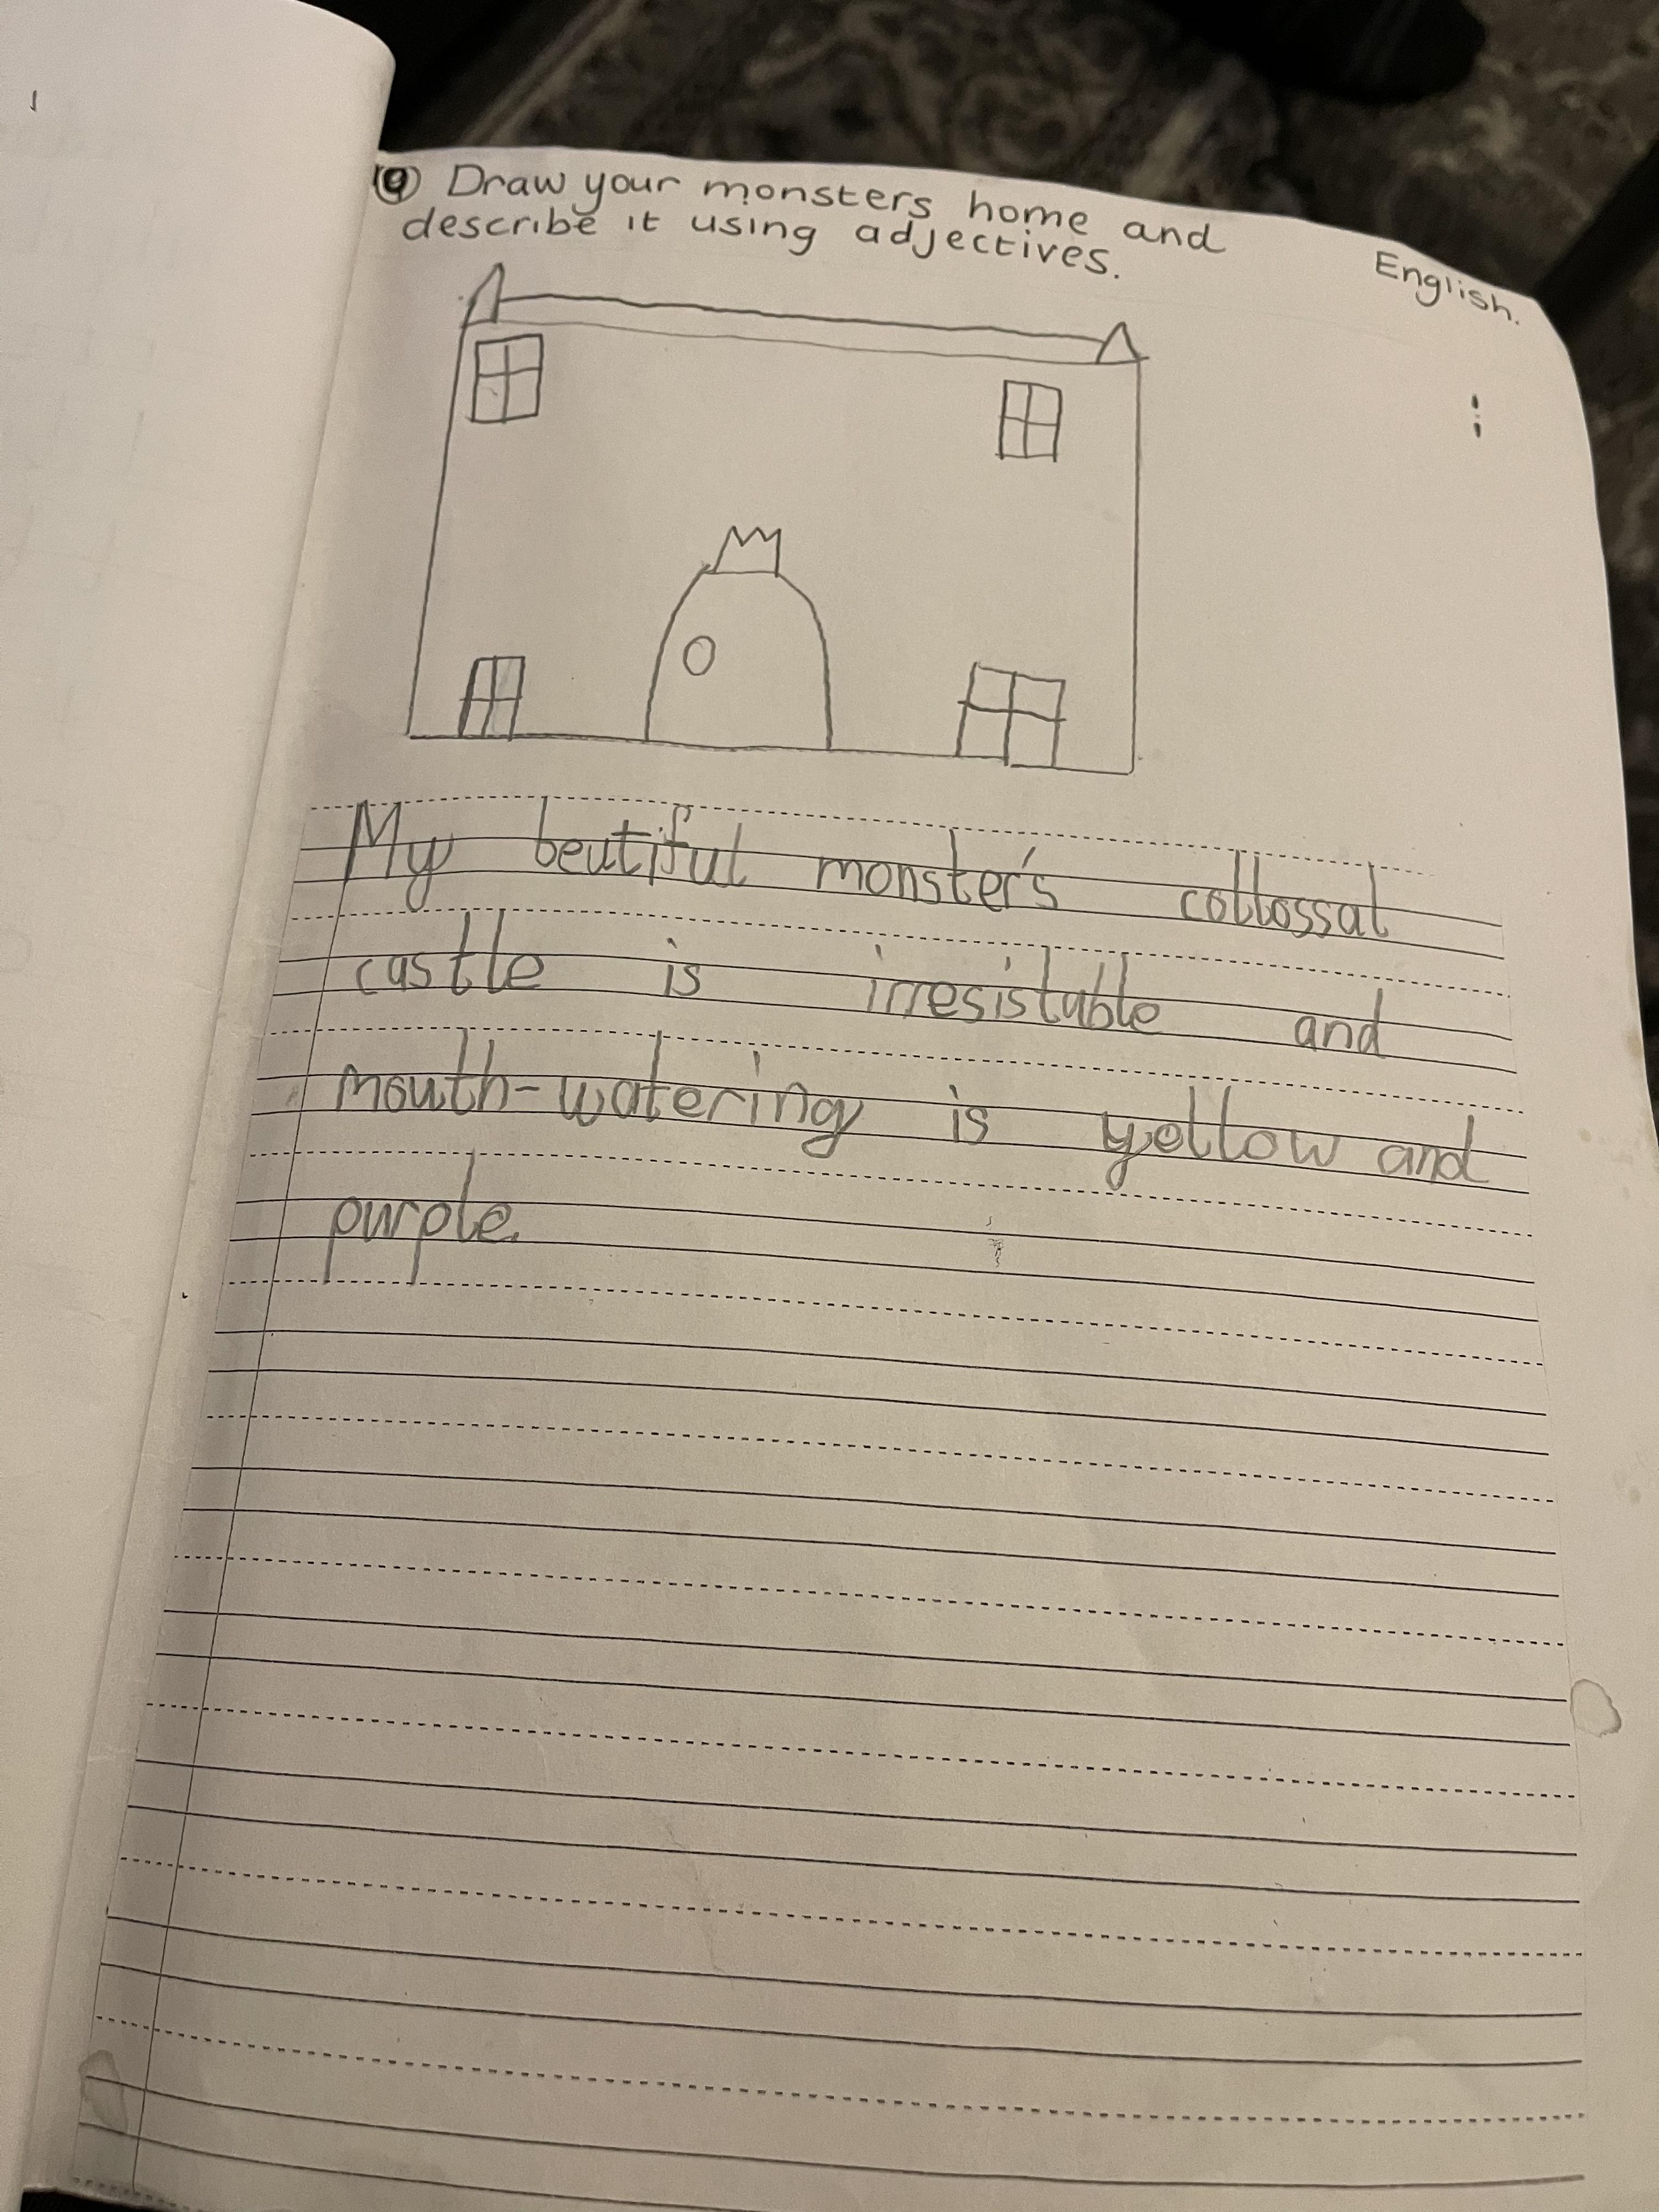 ⑨ Draw your monsters home and
describe it using adjectives.
English.
My beutiful monster's collossal
castle is irresistable and
mouth-watering is yellow and
purple.